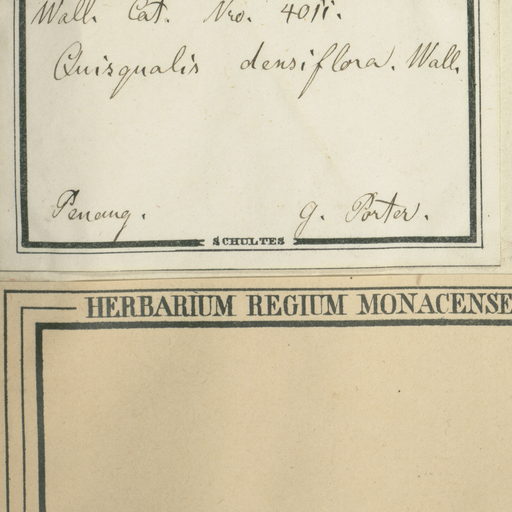 Wall. Cat. Nro. 4011.
Quisqualis densiflora. Wall.
Penang. G. Porter.
SCHULTES
HERBARIUM REGIUM MONACENSE